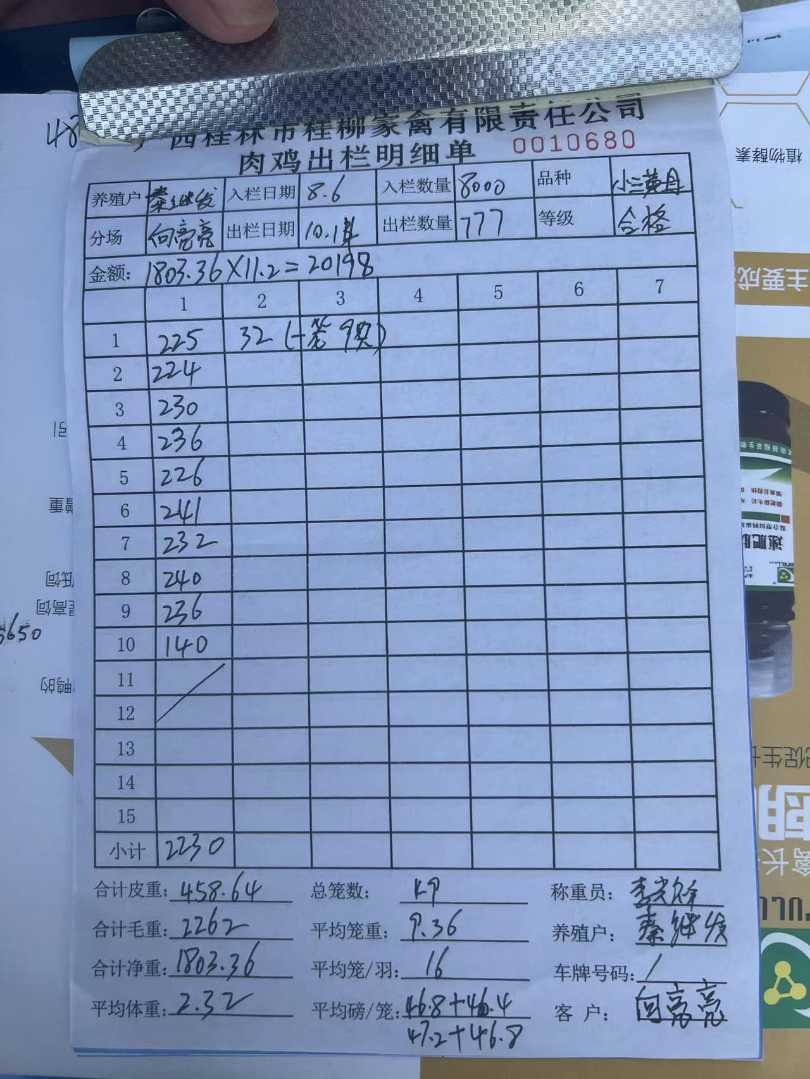 48
广西桂林市桂柳家禽有限责任公司
肉鸡出栏明细单 0010680
养殖户 秦继发 入栏日期 8.6 入栏数量 8000 品种
分场 向亮亮 出栏日期 出栏数量 777 等级 合格
金额: 1803.36×11.2=20198
1 2 3 4 5 6 7
1 225 32 (一笼 9只)
2 224
3 230
4 236
5 226
6 241
7 232
8 240
9 236
10 140
11
12
13
14
15
小计 2230
合计皮重: 458.64 总笼数: 49 称重员:
合计毛重: 2262 平均笼重: 9.36 养殖户: 秦继发
合计净重: 1803.36 平均笼/羽: 16 车牌号码: /
平均体重: 2.32 平均磅/笼: 46.8+46.4 客 户: 向亮亮
47.2+46.8
植物酵素
主要成
速肥
促生长
禽长
PULL
增重
低饲
提高饲
鸭的
3650